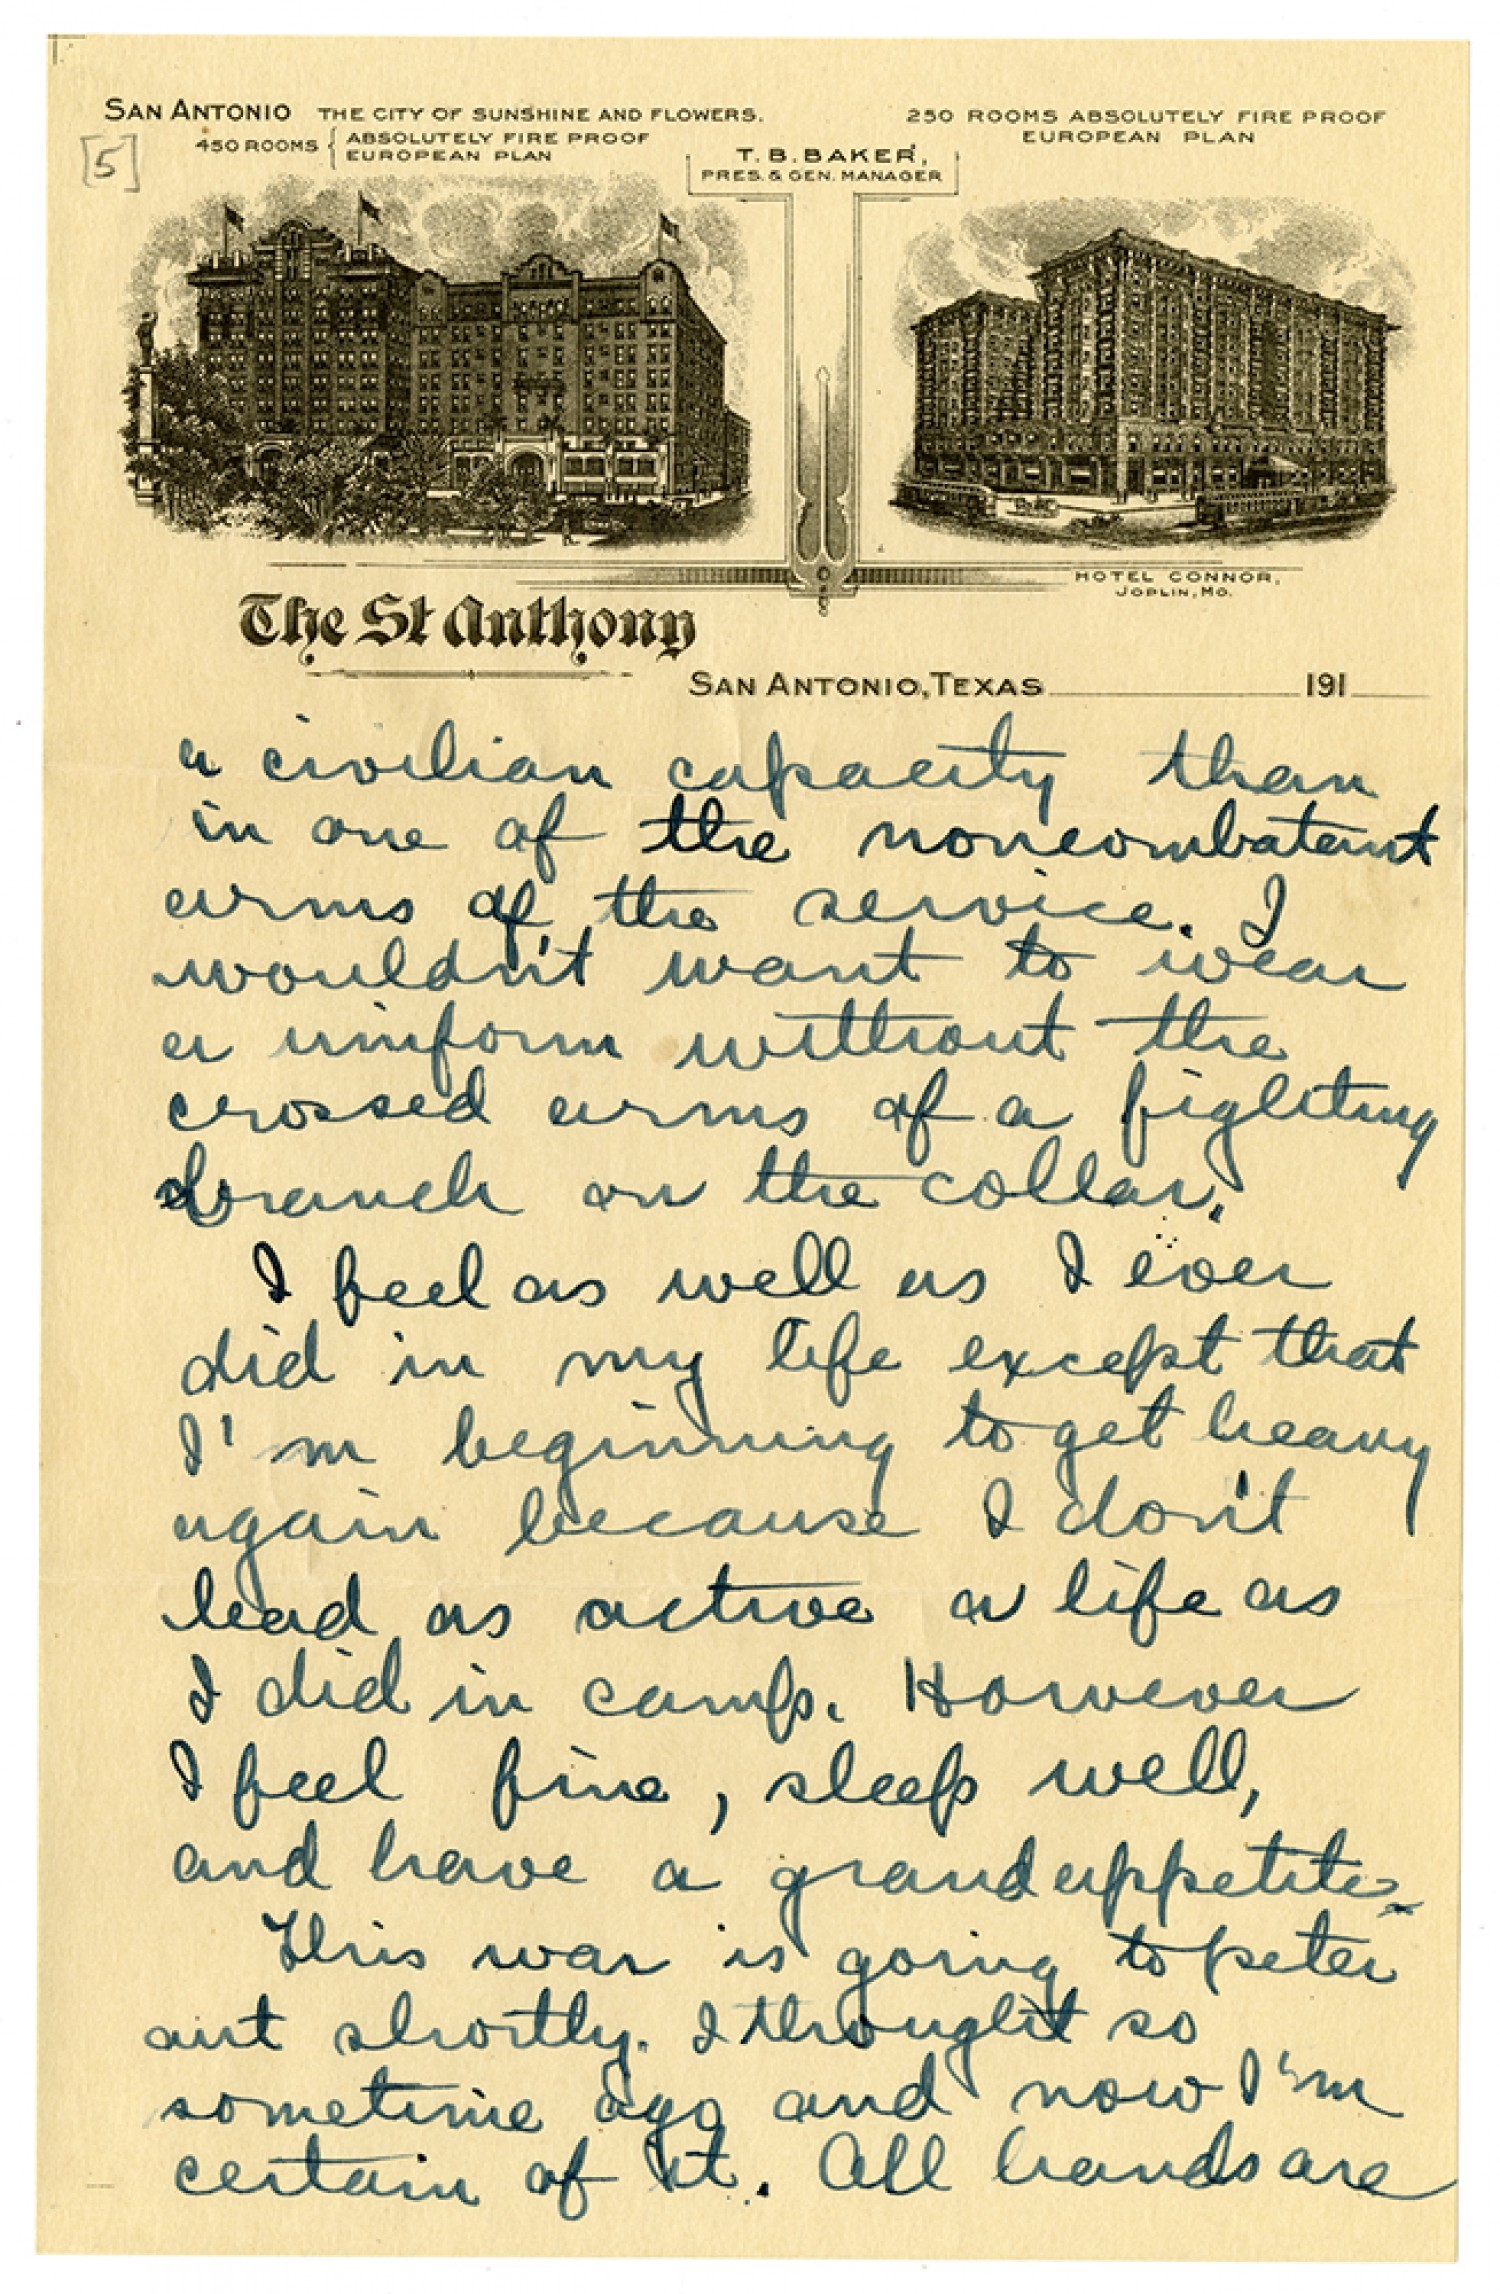 SAN ANTONIO THE CITY OF SUNSHINE AND FLOWERS.
450 ROOMS { ABSOLUTELY FIRE PROOF
EUROPEAN PLAN
[5]
T. B. BAKER,
PRES. & GEN. MANAGER
250 ROOMS ABSOLUTELY FIRE PROOF
EUROPEAN PLAN
HOTEL CONNOR,
JOPLIN, MO.
The St Anthony
SAN ANTONIO, TEXAS 191
a civilian capacity than
in one of the noncombatant
arms of the service. I
wouldn't want to wear
a uniform without the
crossed arms of a fighting
branch on the collar.
I feel as well as I ever
did in my life except that
I'm beginning to get heavy
again because I don't
lead as active a life as
I did in camp. However
I feel fine, sleep well,
and have a grand appetite.
This war is going to peter
out shortly. I thought so
sometime ago and now I'm
certain of it. All hands are